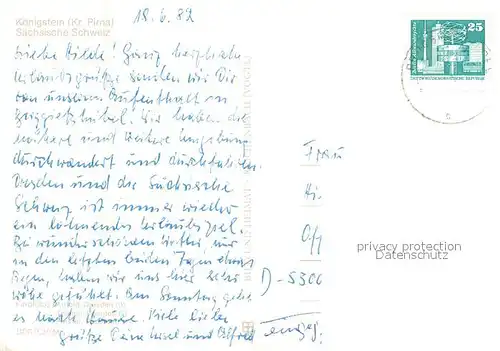 18.6.82
Königstein (Kr. Pirna)
Sächsische Schweiz
Liebe Hilde! Ganz herzliche
Urlaubsgrüße senden wir Dir
von unserem Aufenthalt in
Wir haben die
nähere und weitere Umgebung
durchwandert und durchfahren.
Dresden und die Sächsische
Schweiz ist immer wieder
ein lohnendes Urlaubsziel.
Bei wunderschönem Wetter, nur
in den letzten beiden Tagen etwas
Regen, haben wir uns hier sehr
wohl gefühlt. Am Sonntag geht
es nach Hause. Viele liebe
Grüße Deine und Alfred
25
DEUTSCHE DEMOKRATISCHE REPUBLIK
Frau
Hi.
Off
D-5300
privacy protection
Datenschutz